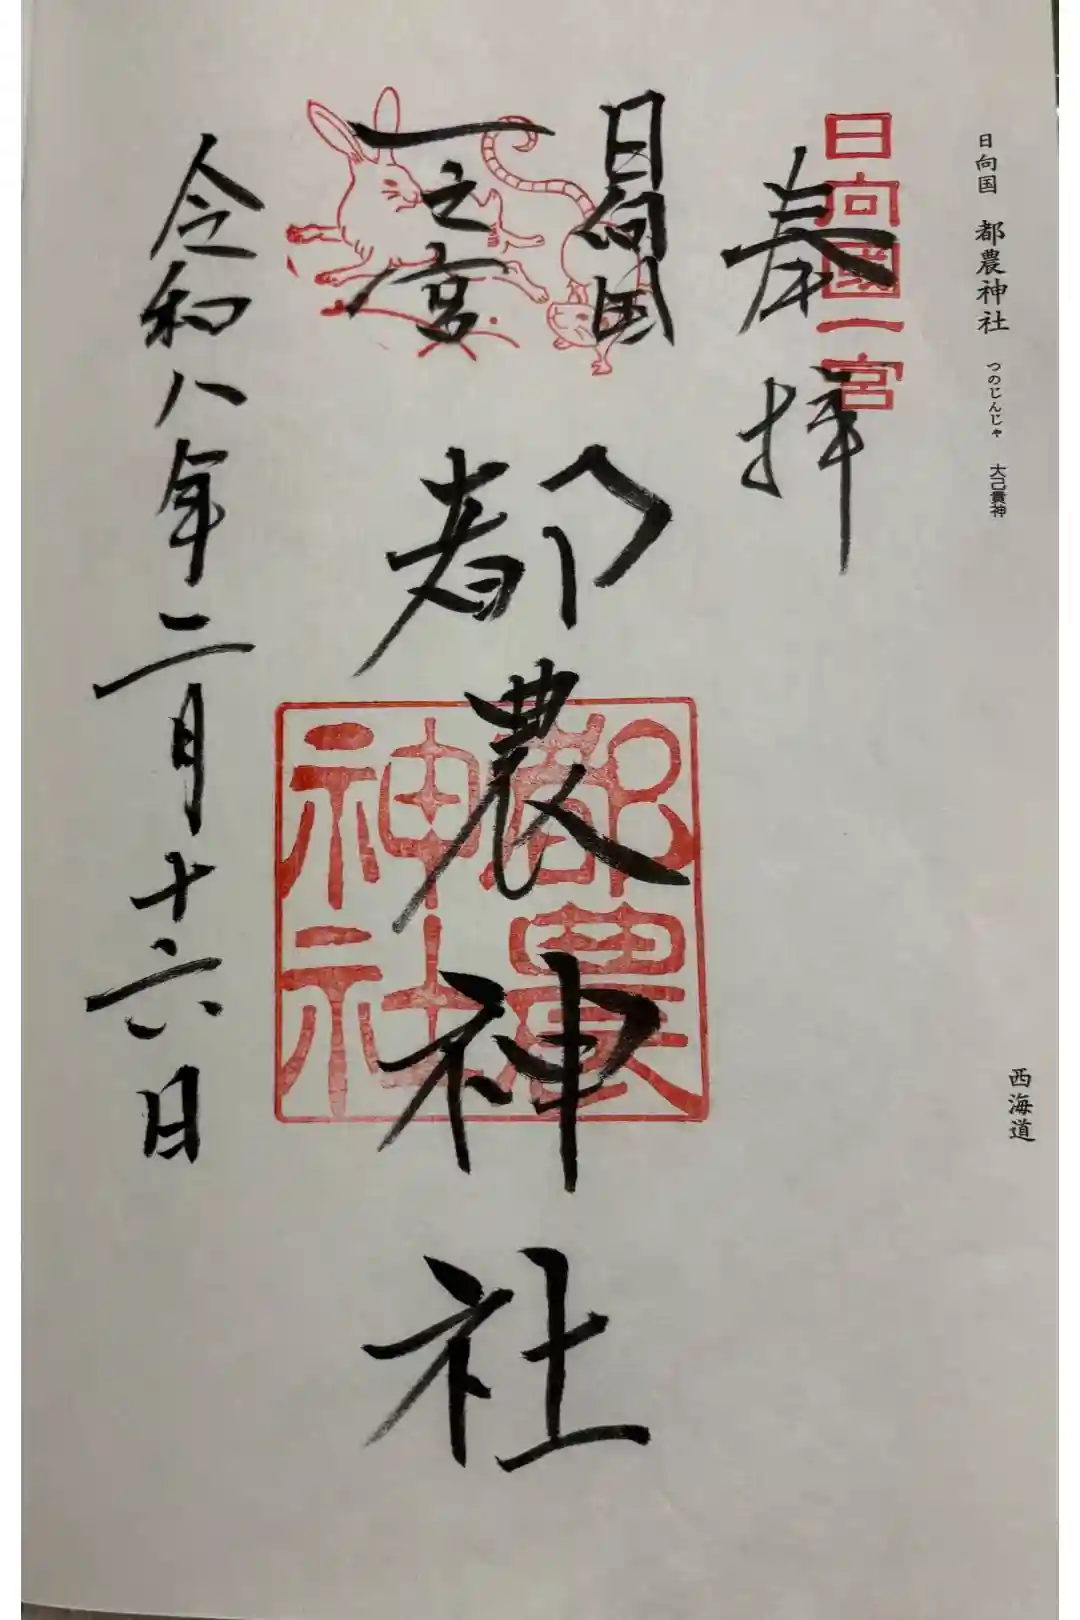 日向国 都農神社 つのじんじゃ 大己貴神
西海道
日向國一宮
奉拝
日向国
一之宮
都農神社
都農神社
令和八年二月十六日